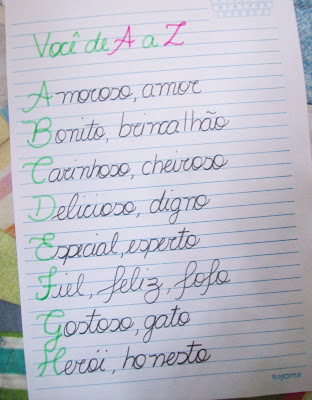 Você de A a Z
Amoroso, amor
Bonito, brincalhão
Carinhoso, cheiroso
Delicioso, digno
Especial, esperto
Fiel, feliz, fofo
Gostoso, gato
Herói, honesto
kajoma